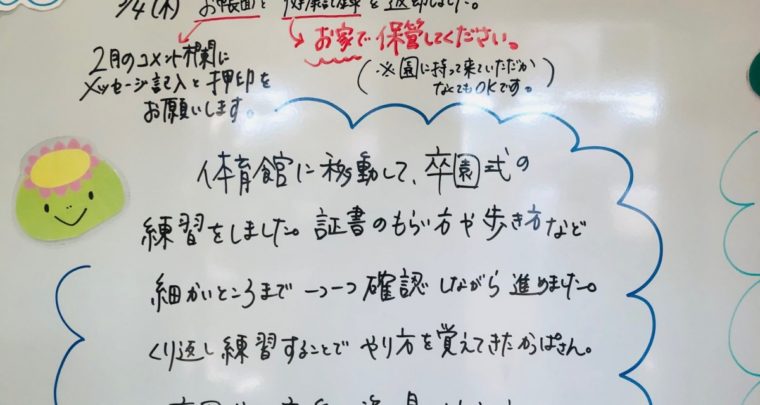 3/4(木) お帳面と健康記録を返却しました。
お家で保管してください。
2月のコメント欄に
メッセージ記入と押印を
お願いします。
(※園に持って来ていただか
なくてもOKです。)
体育館に移動して、卒園式の
練習をしました。証書のもらい方や歩き方など
細かいところまで一つ一つ確認しながら進めました。
くり返し練習することでやり方を覚えてきたかっぱさん。